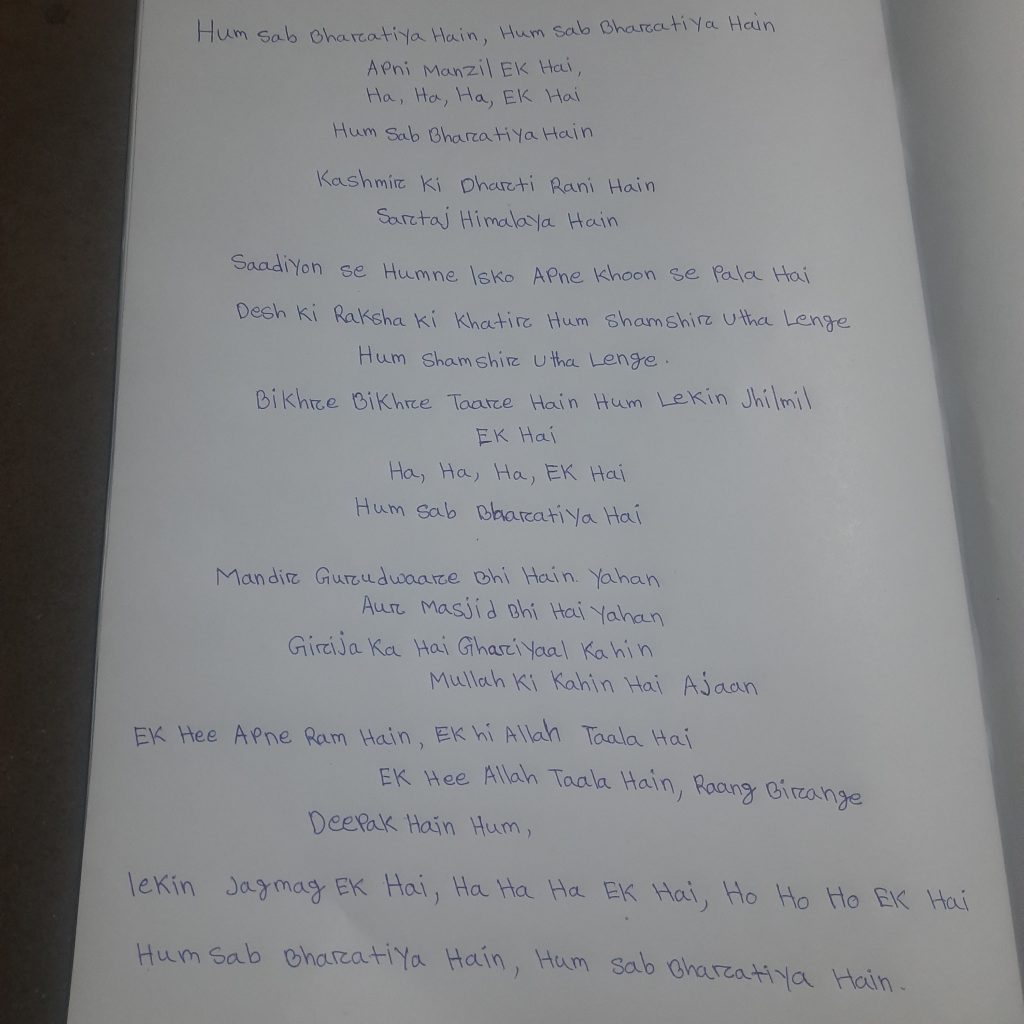 Hum Sab Bharatiya Hain, Hum Sab Bharatiya Hain
Apni Manzil Ek Hai,
Ha, Ha, Ha, Ek Hai
Hum Sab Bharatiya Hain
Kashmir Ki Dharti Rani Hain
Sartaj Himalaya Hain
Saadiyon se Humne Isko Apne Khoon se Pala Hai
Desh Ki Raksha Ki Khatir Hum Shamshir Utha Lenge
Hum Shamshir Utha Lenge.
Bikhre Bikhre Taare Hain Hum Lekin Jhilmil
Ek Hai
Ha, Ha, Ha, Ek Hai
Hum Sab Bharatiya Hai
Mandir Gurudwaare Bhi Hain Yahan
Aur Masjid Bhi Hai Yahan
Girija Ka Hai Ghariyaal Kahin
Mullah Ki Kahin Hai Ajaan
Ek Hee Apne Ram Hain, Ek hi Allah Taala Hai
Ek Hee Allah Taala Hain, Raang Birange
Deepak Hain Hum,
lekin Jagmag Ek Hai, Ha Ha Ha Ek Hai, Ho Ho Ho Ek Hai
Hum Sab Bharatiya Hain, Hum Sab Bharatiya Hain.